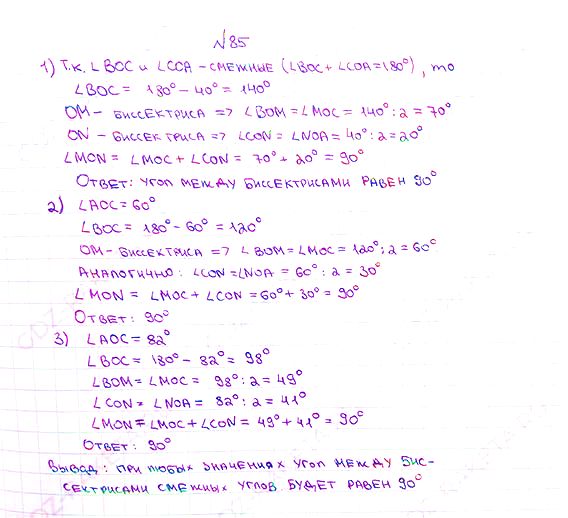 №85
1) Т.к. ∠BOC и ∠COA - смежные (∠BOC + ∠COA = 180°), то
∠BOC = 180° - 40° = 140°
OM - биссектриса => ∠BOM = ∠MOC = 140° : 2 = 70°
ON - биссектриса => ∠CON = ∠NOA = 40° : 2 = 20°
∠MON = ∠MOC + ∠CON = 70° + 20° = 90°
Ответ: угол между биссектрисами равен 90°
2) ∠AOC = 60°
∠BOC = 180° - 60° = 120°
OM - биссектриса => ∠BOM = ∠MOC = 120° : 2 = 60°
Аналогично: ∠CON = ∠NOA = 60° : 2 = 30°
∠MON = ∠MOC + ∠CON = 60° + 30° = 90°
Ответ: 90°
3) ∠AOC = 82°
∠BOC = 180° - 82° = 98°
∠BOM = ∠MOC = 98° : 2 = 49°
∠CON = ∠NOA = 82° : 2 = 41°
∠MON = ∠MOC + ∠CON = 49° + 41° = 90°
Ответ: 90°
Вывод: при любых значениях угол между бис-
сектрисами смежных углов будет равен 90°